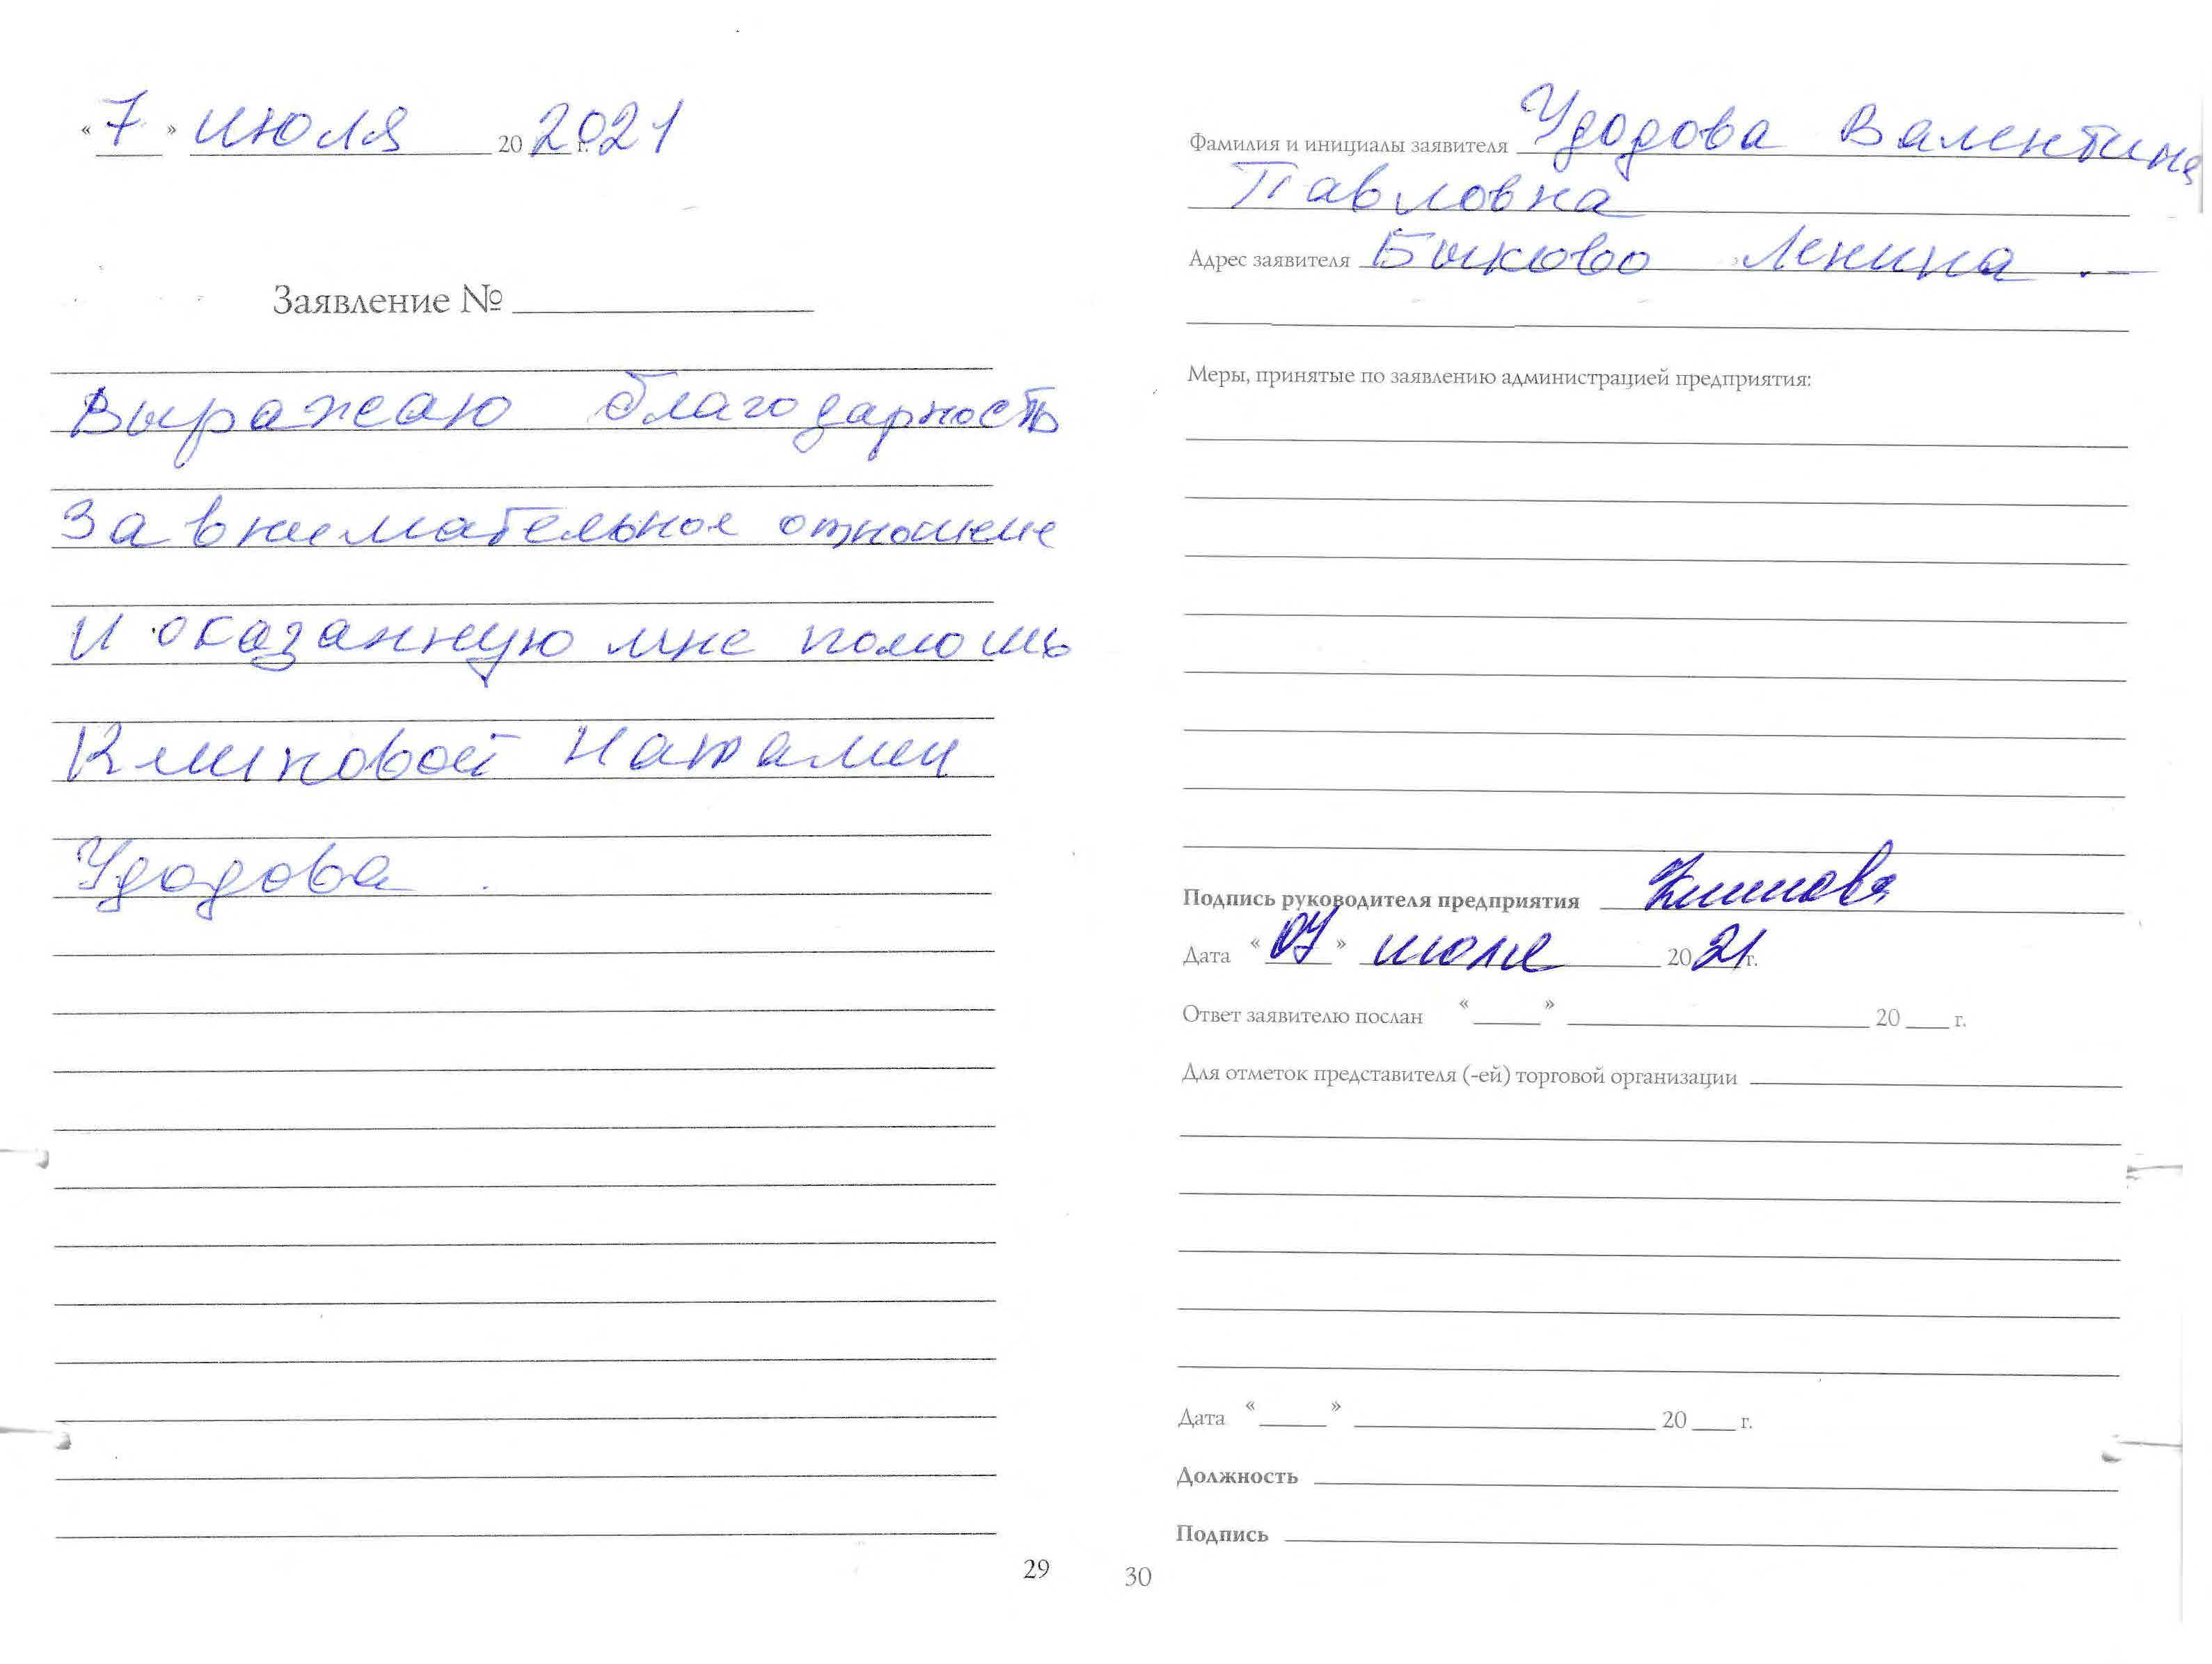 « 7 » июля 20 2021 г.
Заявление №
Выражаю благодарность
За внимательное отношение
и оказанную мне помощь
Климовой Наталии
Удодова.
29
Фамилия и инициалы заявителя Удодова Валентина
Павловна
Адрес заявителя Быково Ленина
Меры, принятые по заявлению администрацией предприятия:
Подпись руководителя предприятия
Дата « 07 » июля 20 21 г.
Ответ заявителю послан « » 20 г.
Для отметок представителя (-ей) торговой организации
Дата « » 20 г.
Должность
Подпись
30